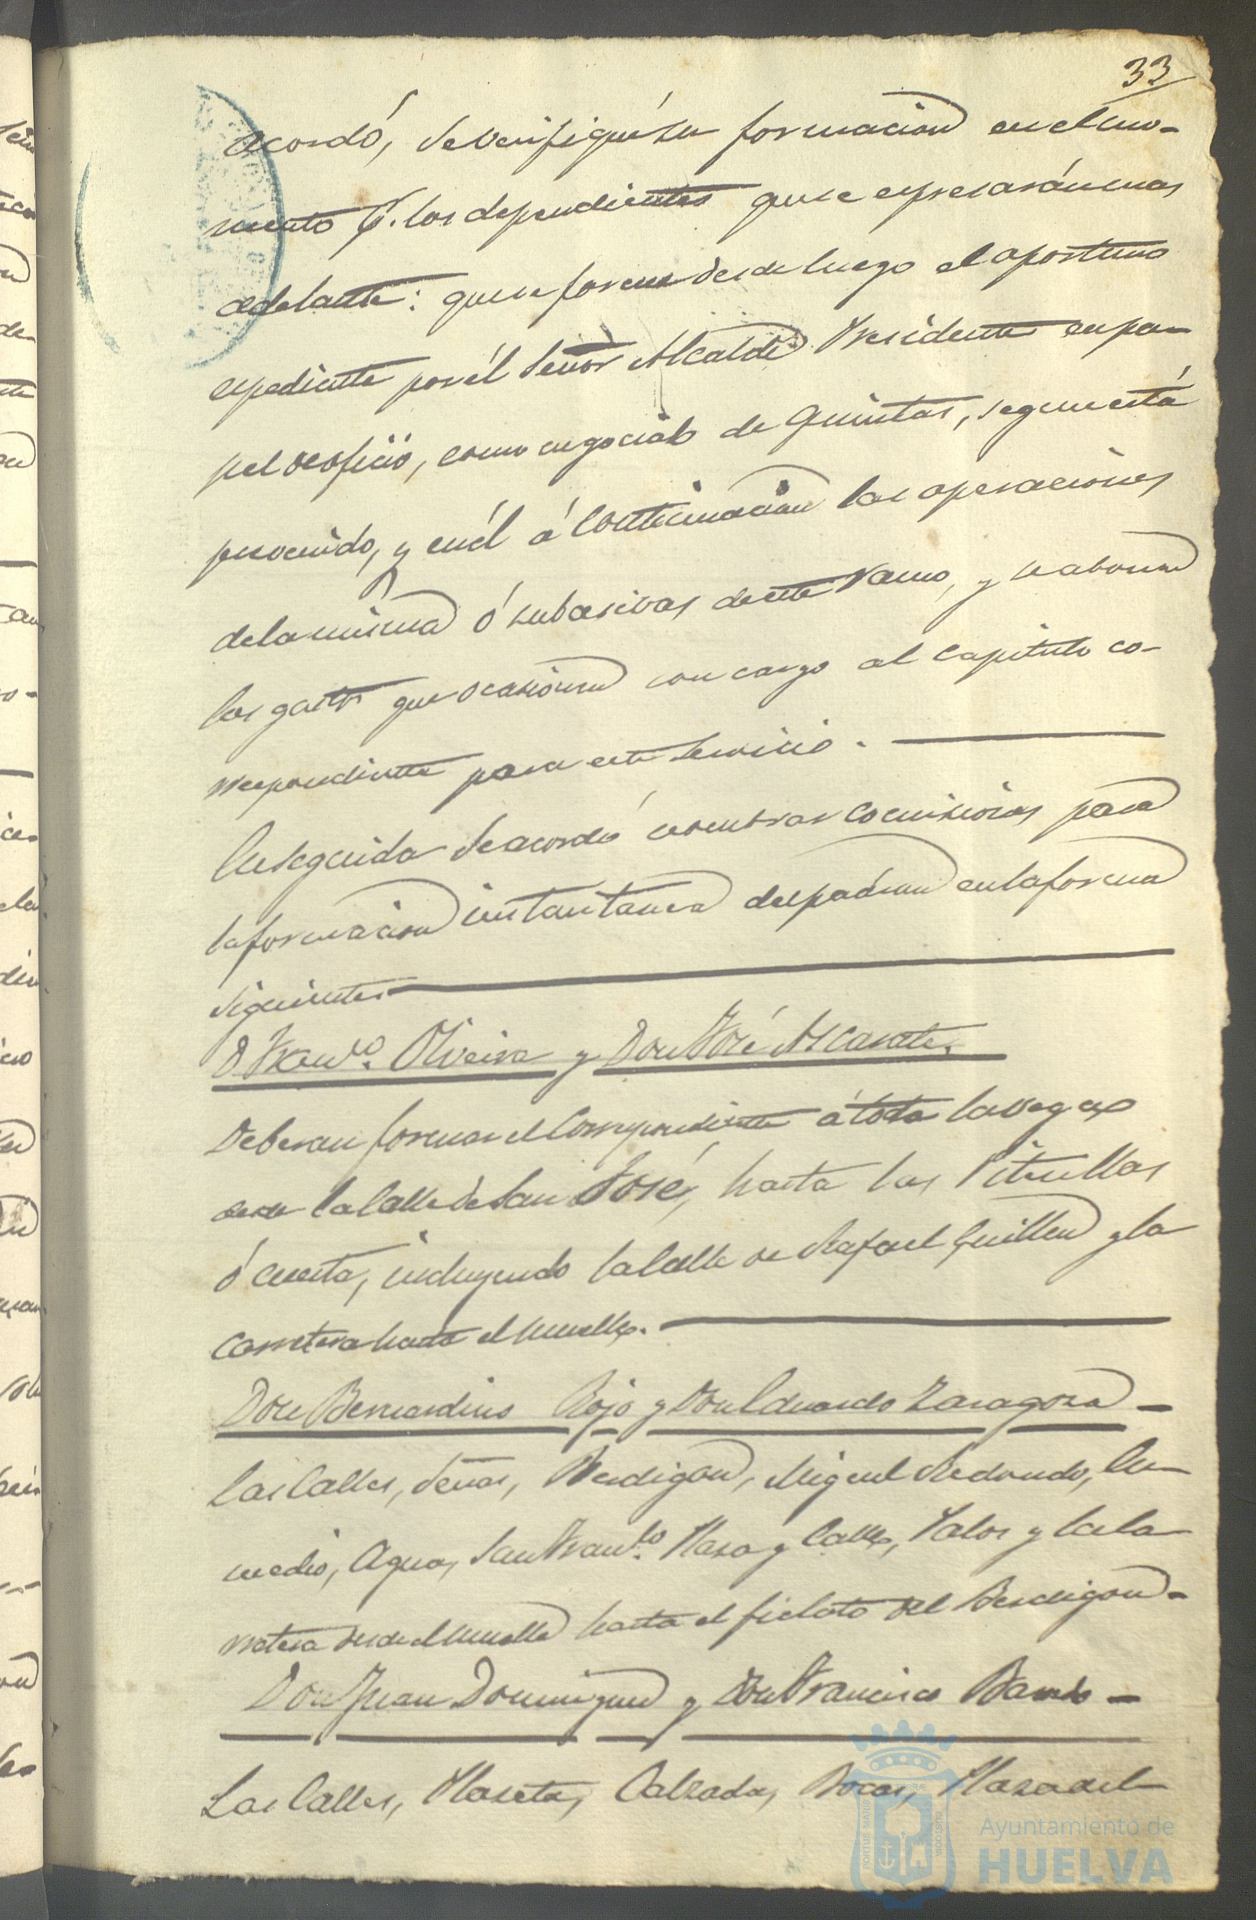 33
acordó, se verifique su formacion en el mo-
mento p.r los dependientes que se espresarán mas
adelante: que se forme desde luego el oportuno
espediente por el Señor Alcalde Presidente en pa-
pel de oficio, como negociado de Quintas, segun está
prevenido, y en él á continuacion las operaciones
de la misma ó subasivas de este ramo, y se abonen
los gastos que ocasionen con cargo al capitulo co-
rrespondiente para este servicio.
Enseguida se acordó nombrar comisiones para
la formacion instantanea del padron en la forma
siguiente
D Fran.co Olveira y Don José Ascarate.
Deberan formar el correspondiente á toda la vega
desde la Calle de San José, hasta las
ó cuesta, incluyendo la Calle de Rafael Guillen y la
carretera hasta el muelle.
Don Bernardino Rojo y Don Eduardo Zaragoza
Las Calles, Señas, Berdigon, Miguel Redondo, En-
medio, Agua, San Fran.co Plaza y Calle, Palos y la Ca
rretera desde el muelle hasta el fielato del Berdigon
Don Juan Dominguez y Don Francisco
Las Calles, Placeta, Calzada, Bocas, Plaza del
Ayuntamiento de
HUELVA